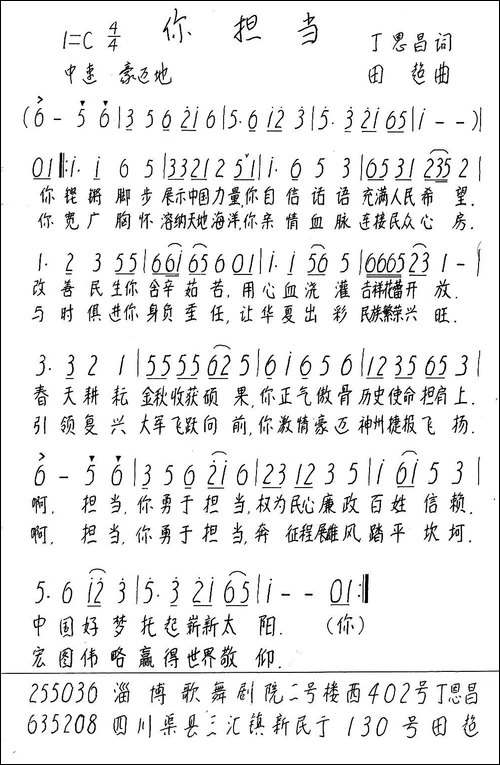 你 担 当
1=C 4/4 丁思昌词
中速 豪迈地 田 趋曲
(6 - 5 6|3 5 6 2i 6|5·6 i2 3|5·3 2i 65|i - -)|
01|:i·i 6 5|3321 2 51|i·6 5 3|6531 235 2|
你 铿锵 脚 步 展示中国力量,你自信话语 充满人民希 望.
你 宽广 胸 怀 溶纳天地海洋,你亲情血脉 连接民众心 房.
1·2 3 55|66i 65 6 01|i·i 56 5|6665 23 1-|
改 善 民生你 含辛 茹 苦, 用心血浇 灌 吉祥花蕾开 放.
与 时 俱进你 身负 重 任, 让华夏出 彩 民族繁荣兴 旺.
3·3 2 1|5555 62 5|6 i 6 5 6|1235 65 3|
春 天耕 耘 金秋收获硕 果,你正气傲骨 历史使命担肩上.
引 领复 兴 大军飞跃向 前,你激情豪迈 神州捷报飞 扬.
6 - 5 6|3 5 6 2i 6|23 12 3 5|i 6i 5 3|
啊. 担当,你勇于 担 当,权为民心廉政 百 姓 信 赖.
啊. 担当,你勇于 担 当,奔 征程展雄风 踏 平 坎 坷.
5·6 i2 3|5·3 2i 65|i - - 01:|
中 国好 梦 托 起 崭新太 阳. (你)
宏 图伟 略 赢 得 世界敬 仰.
255036 淄博歌舞剧院二号楼西402号丁思昌
635208 四川渠县三汇镇新民于130号田趋